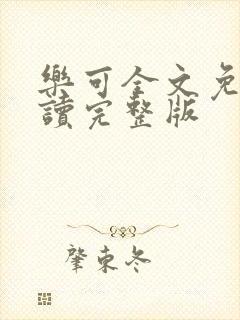 樂可全文免
讀完整版
肇東冬